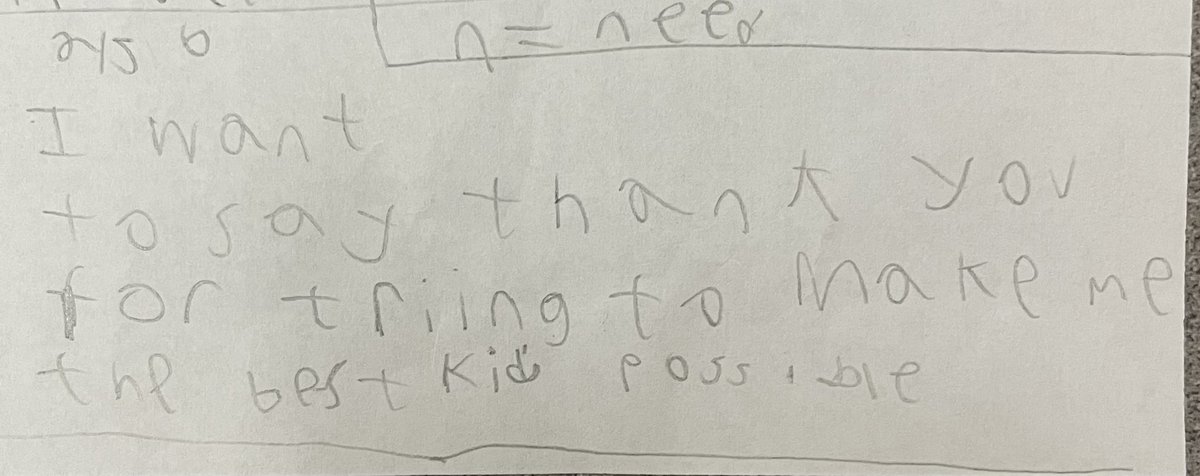 n = need
I want
to say thank you
for triing to make me
the best kid possible